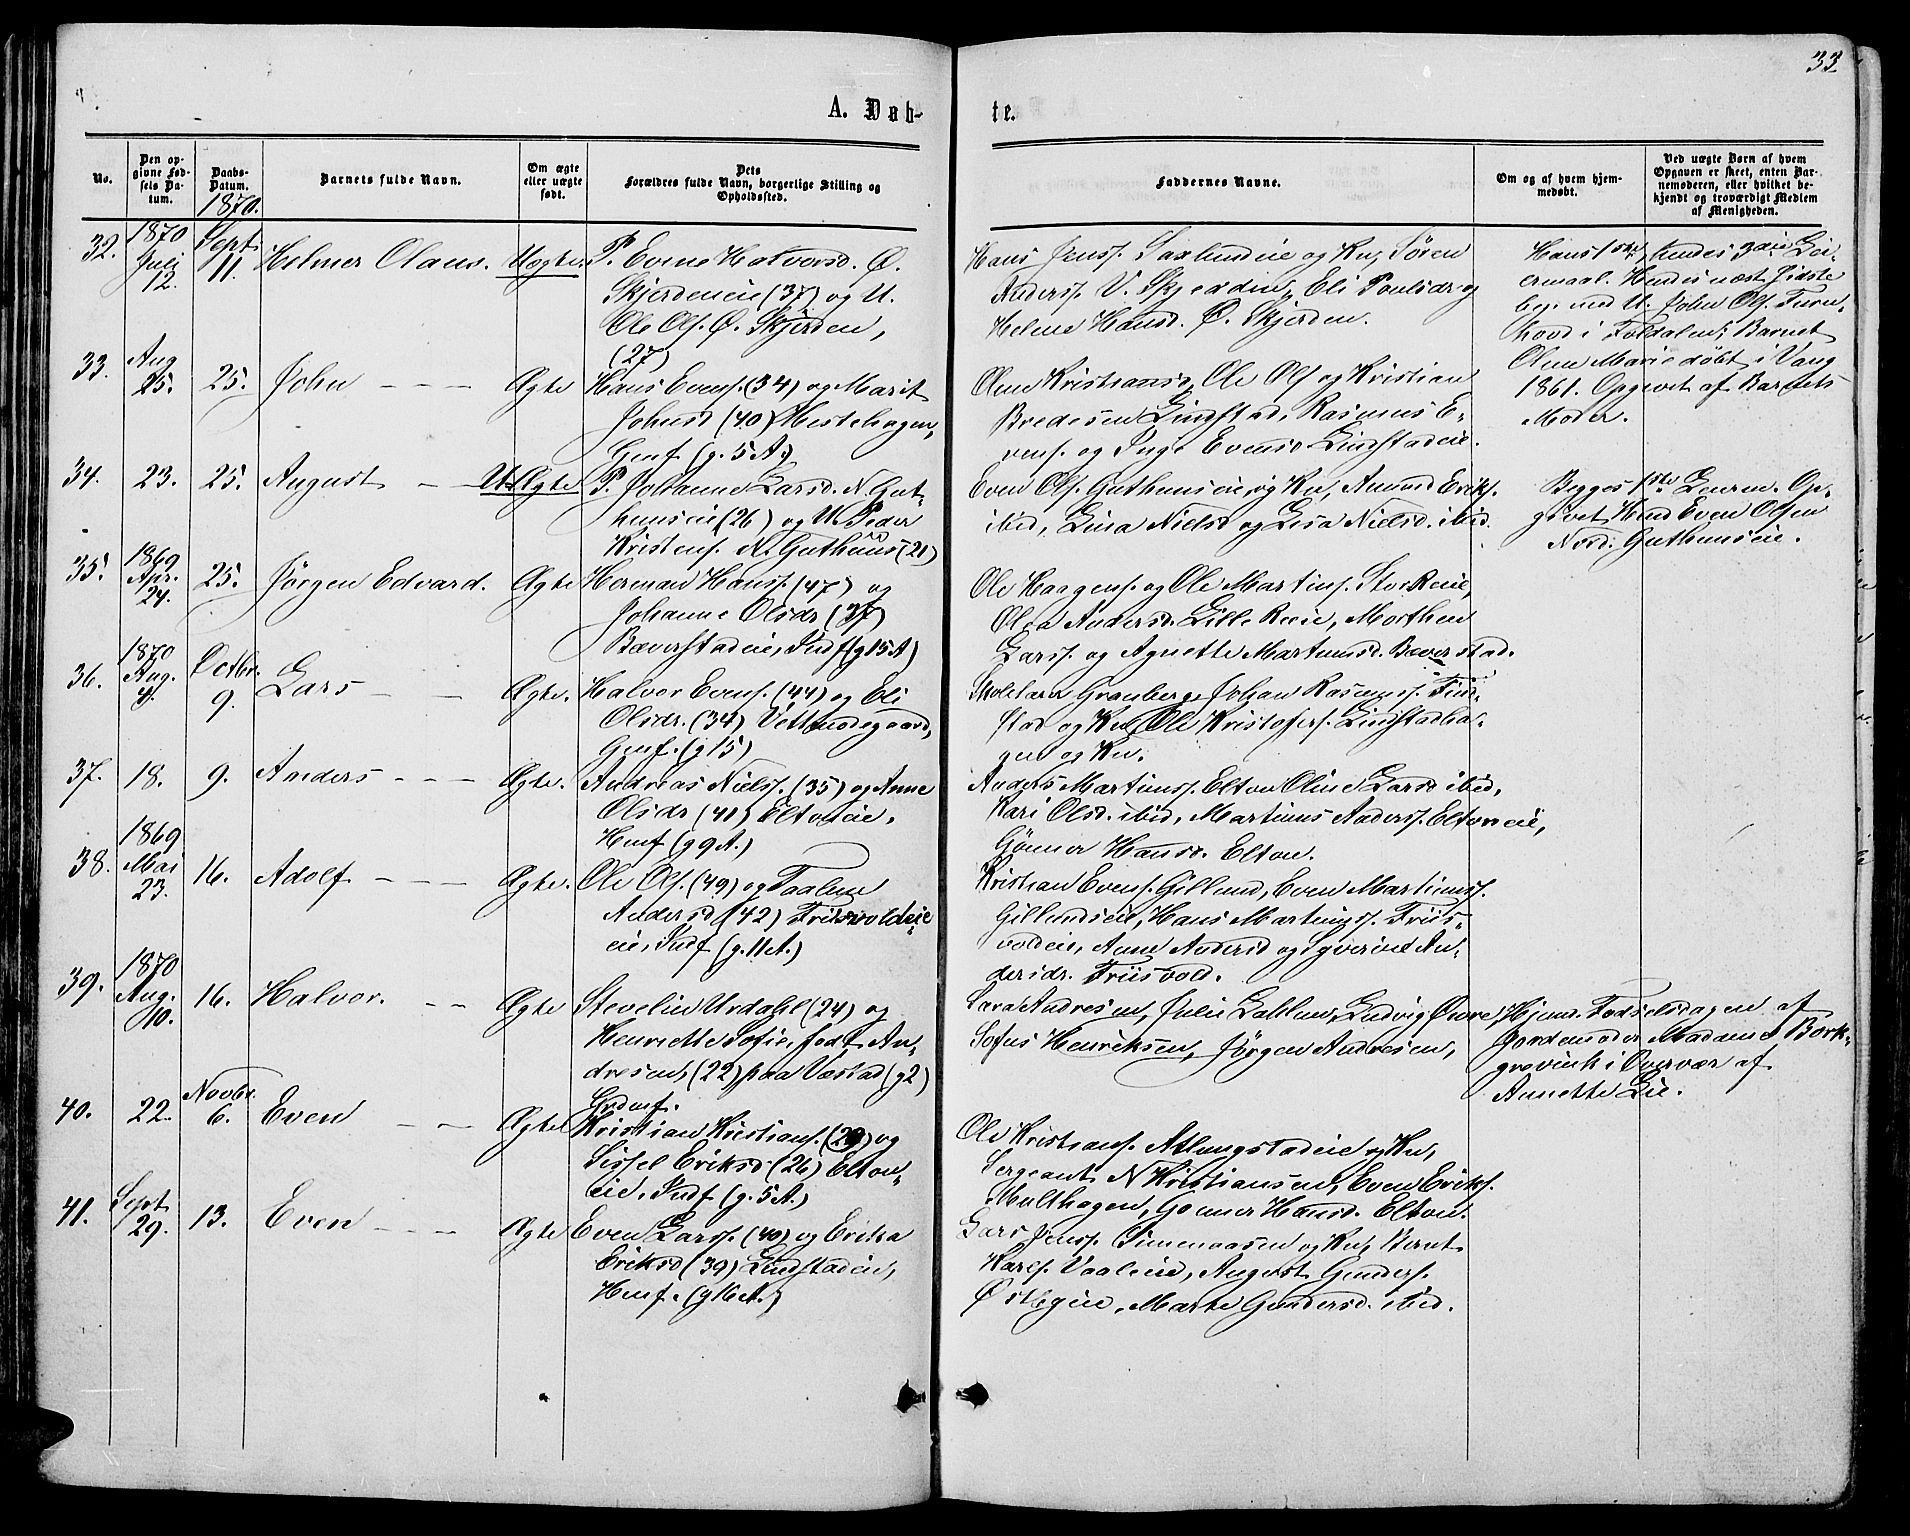 33
A. Døb-
te.
No.
Den op-
givne Fød-
sels Da-
tum.
Daabs-
Datum.
1870.
Barnets fulde Navn.
Om ægte
eller uægte
født.
Dets
Forældres fulde Navn, borgerlige Stilling og
Opholdssted.
Faddernes Navne.
Om og af hvem hjem-
medøbt.
Ved uægte Børn af hvem
Opgaven er skeet, enten Bar-
nemoderen, eller hvilket be-
kjendt og troværdigt Medlem
af Menigheden.
32.
1870
Juli
12.
Sept.
11.
Helmer Olaus.
Uægte.
P. Evine Halvorsd. Ø.
Skjerdeneie (37) og U.
Ole Ols. Ø. Skjerden,
(27)
Hans Jenss. Saxlundeie og Ku, Søren
Anderss. V. Skjerden, Eli Poulsdr og
Helene Hansd. Ø. Skjerden.
Hans 1ste, hendes 3die Lei-
ermaal. Hendes næst sidste
beg. med U. John Ols. Furu-
hovd i Foldalen; Barnet
Oline Marie døbt i Vang
1861. Opgivet af Barnets
Moder.
33.
Aug
25.
25.
John - - -
Ægte
Hans Evens. (34) og Marit
Johnsd (40) Hestehagen,
Gmf (g. 5 A.)
Oline Kristiansd, Ole Ols og Kristian
Bredesen Lindstad, Rasmus E-
vens. og Inge Evensd Lindstadeie.
34.
23.
25.
August -
U. Ægte
P. Johanne Larsd. N. Gut-
hunseie (26) og U. Peder
Kristens. N. Guthuus (20)
Even Ols. Guthunseie og Ku, Amund Eriks.
ibid, Lina Nielsd og Lisa Nielsd. ibid.
Begges 1ste Leierm. Op-
givet Hmd Even Olsen
Nord. Guthunseie.
35.
1869
Apr.
24.
25.
Jørgen Edvard.
Ægte
Herman Hanss. (47) og
Johanne Olsdr (37)
Bæverstadeie, Indf (g 15 A)
Ole Haagens. og Ole Martins. Stor Reie,
Olea Andersd. Lille Reie, Morthen
Larss. og Agnette Martinusd. Bæverstad.
36.
1870
Aug.
4.
Octbr.
9.
Lars - -
Ægte.
Halvor Evens. (44) og Eli
Olsdr. (34) Vettendsgaard,
Gmf. (g 15)
Skolelærer Granberg, Johan Rasmuss. Find-
stad og Ku, Ole Kristofers. Lindstadha-
gen og Ku.
37.
18.
9.
Anders - - -
Ægte.
Andreas Nielss. (35) og Anne
Olsdr (41) Eltoneie,
Hmf (g 9 A.)
Anders Martinss. Elton Oline Larsd ibid,
Kari Olsd. ibid, Martinus Anderss. Eltoneie,
Gønner Hansd. Elton.
38.
1869.
Mai
23.
16.
Adolf - - -
Ægte.
Ole Ols. (49) og Taalene
Andersd (42) Friisvoldeie
eie, Indf (g. 11 A.)
Kristian Evens. Gillund, Even Martinss.
Gillundseie, Hans Martinss. Friis-
voldeie, Anne Andersd og Syverine An-
dersdr. Friisvold.
39.
1870
Aug.
10.
16.
Halvor. - -
Ægte
Stevelin Urdahl (24) og
Henriette Sofie, født An-
dresen, (22) paa Væstad (g 2)
Gvdmf.
Lava Andresen, Julie Lahlum, Ludvig Øvre,
Sofus Henriksen, Jørgen Andresen,
Hjmd. Fødselsdagen af
Jordemoder Madame Bork-
grevink i Overvær af
Annette Lie.
40.
22.
Novbr.
6.
Even - -
Ægte
Kristian Kristians. (29) og
Sissel Eriksd (26) Elton-
eie, Indf (g. 5 A.)
Ole Kristians. Atlungstadeie og Ku,
Sergeant N Kristiansen, Even Eriks.
Multhagen, Gønner Hansd. Elton.
41.
Sept
29.
13.
Even - - -
Ægte
Even Larss. (40) og Erika
Eriksd (39) Lindstadeie,
Hmf. (g 16 A.)
Lars Jenss. Simenaasen og Ku, Bernt
Karls. Vaaleie, August Gunders.
Østbyeie, Marte Gundersd. ibid.